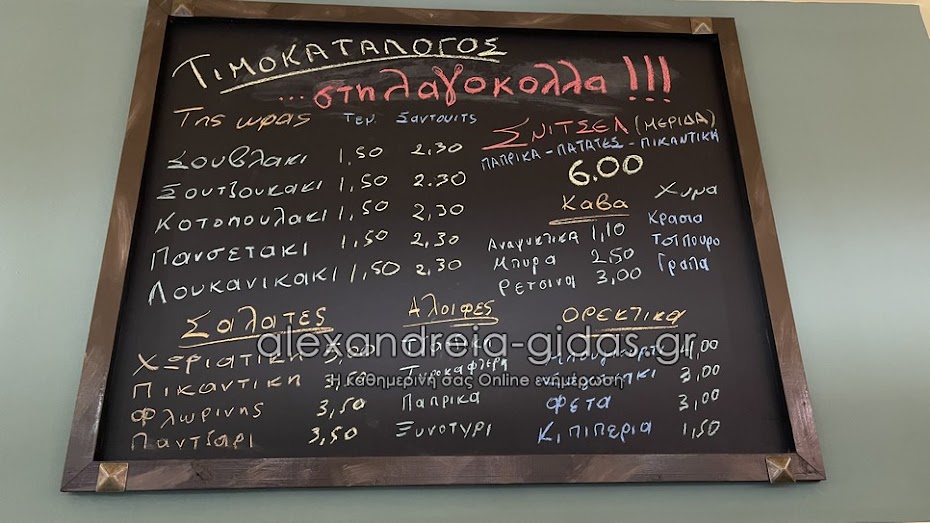 ΤΙΜΟΚΑΤΑΛΟΓΟΣ
...στη λαγοκολλα !!!
Της ωρας Τεμ. Σαντουιτς
Σουβλακι 1,50 2.30
Σουτζουκακι 1,50 2.30
Κοτοπουλακι 1,50 2,30
Πανσετακι 1,50 2,30
Λουκανικακι 1,50 2,30
ΣΝΙΤΣΕΛ (ΜΕΡΙΔΑ)
ΠΑΠΡΙΚΑ - ΠΑΤΑΤΕΣ - ΠΙΚΑΝΤΙΚΗ
6.00
Καβα
Αναψυκτικα 1,10
Μπυρα 2.50
Ρετσινα 3,00
Χυμα
Κρασια
Τσιπουρο
Γραπα
Σαλατες
Χωριατικη
Πικαντικη 3,50
Φλωρινης 3,50
Παντζαρι 3,50
Αλοιφες
Παπρικα
Ξυνοτυρι
ΟΡΕΚΤΙΚΑ
4,00
3,00
Φετα 3,00
Κ. πιπερια 1,50
alexandreia-gidas.gr
Η καθημερινή σας Online ενημέρωση